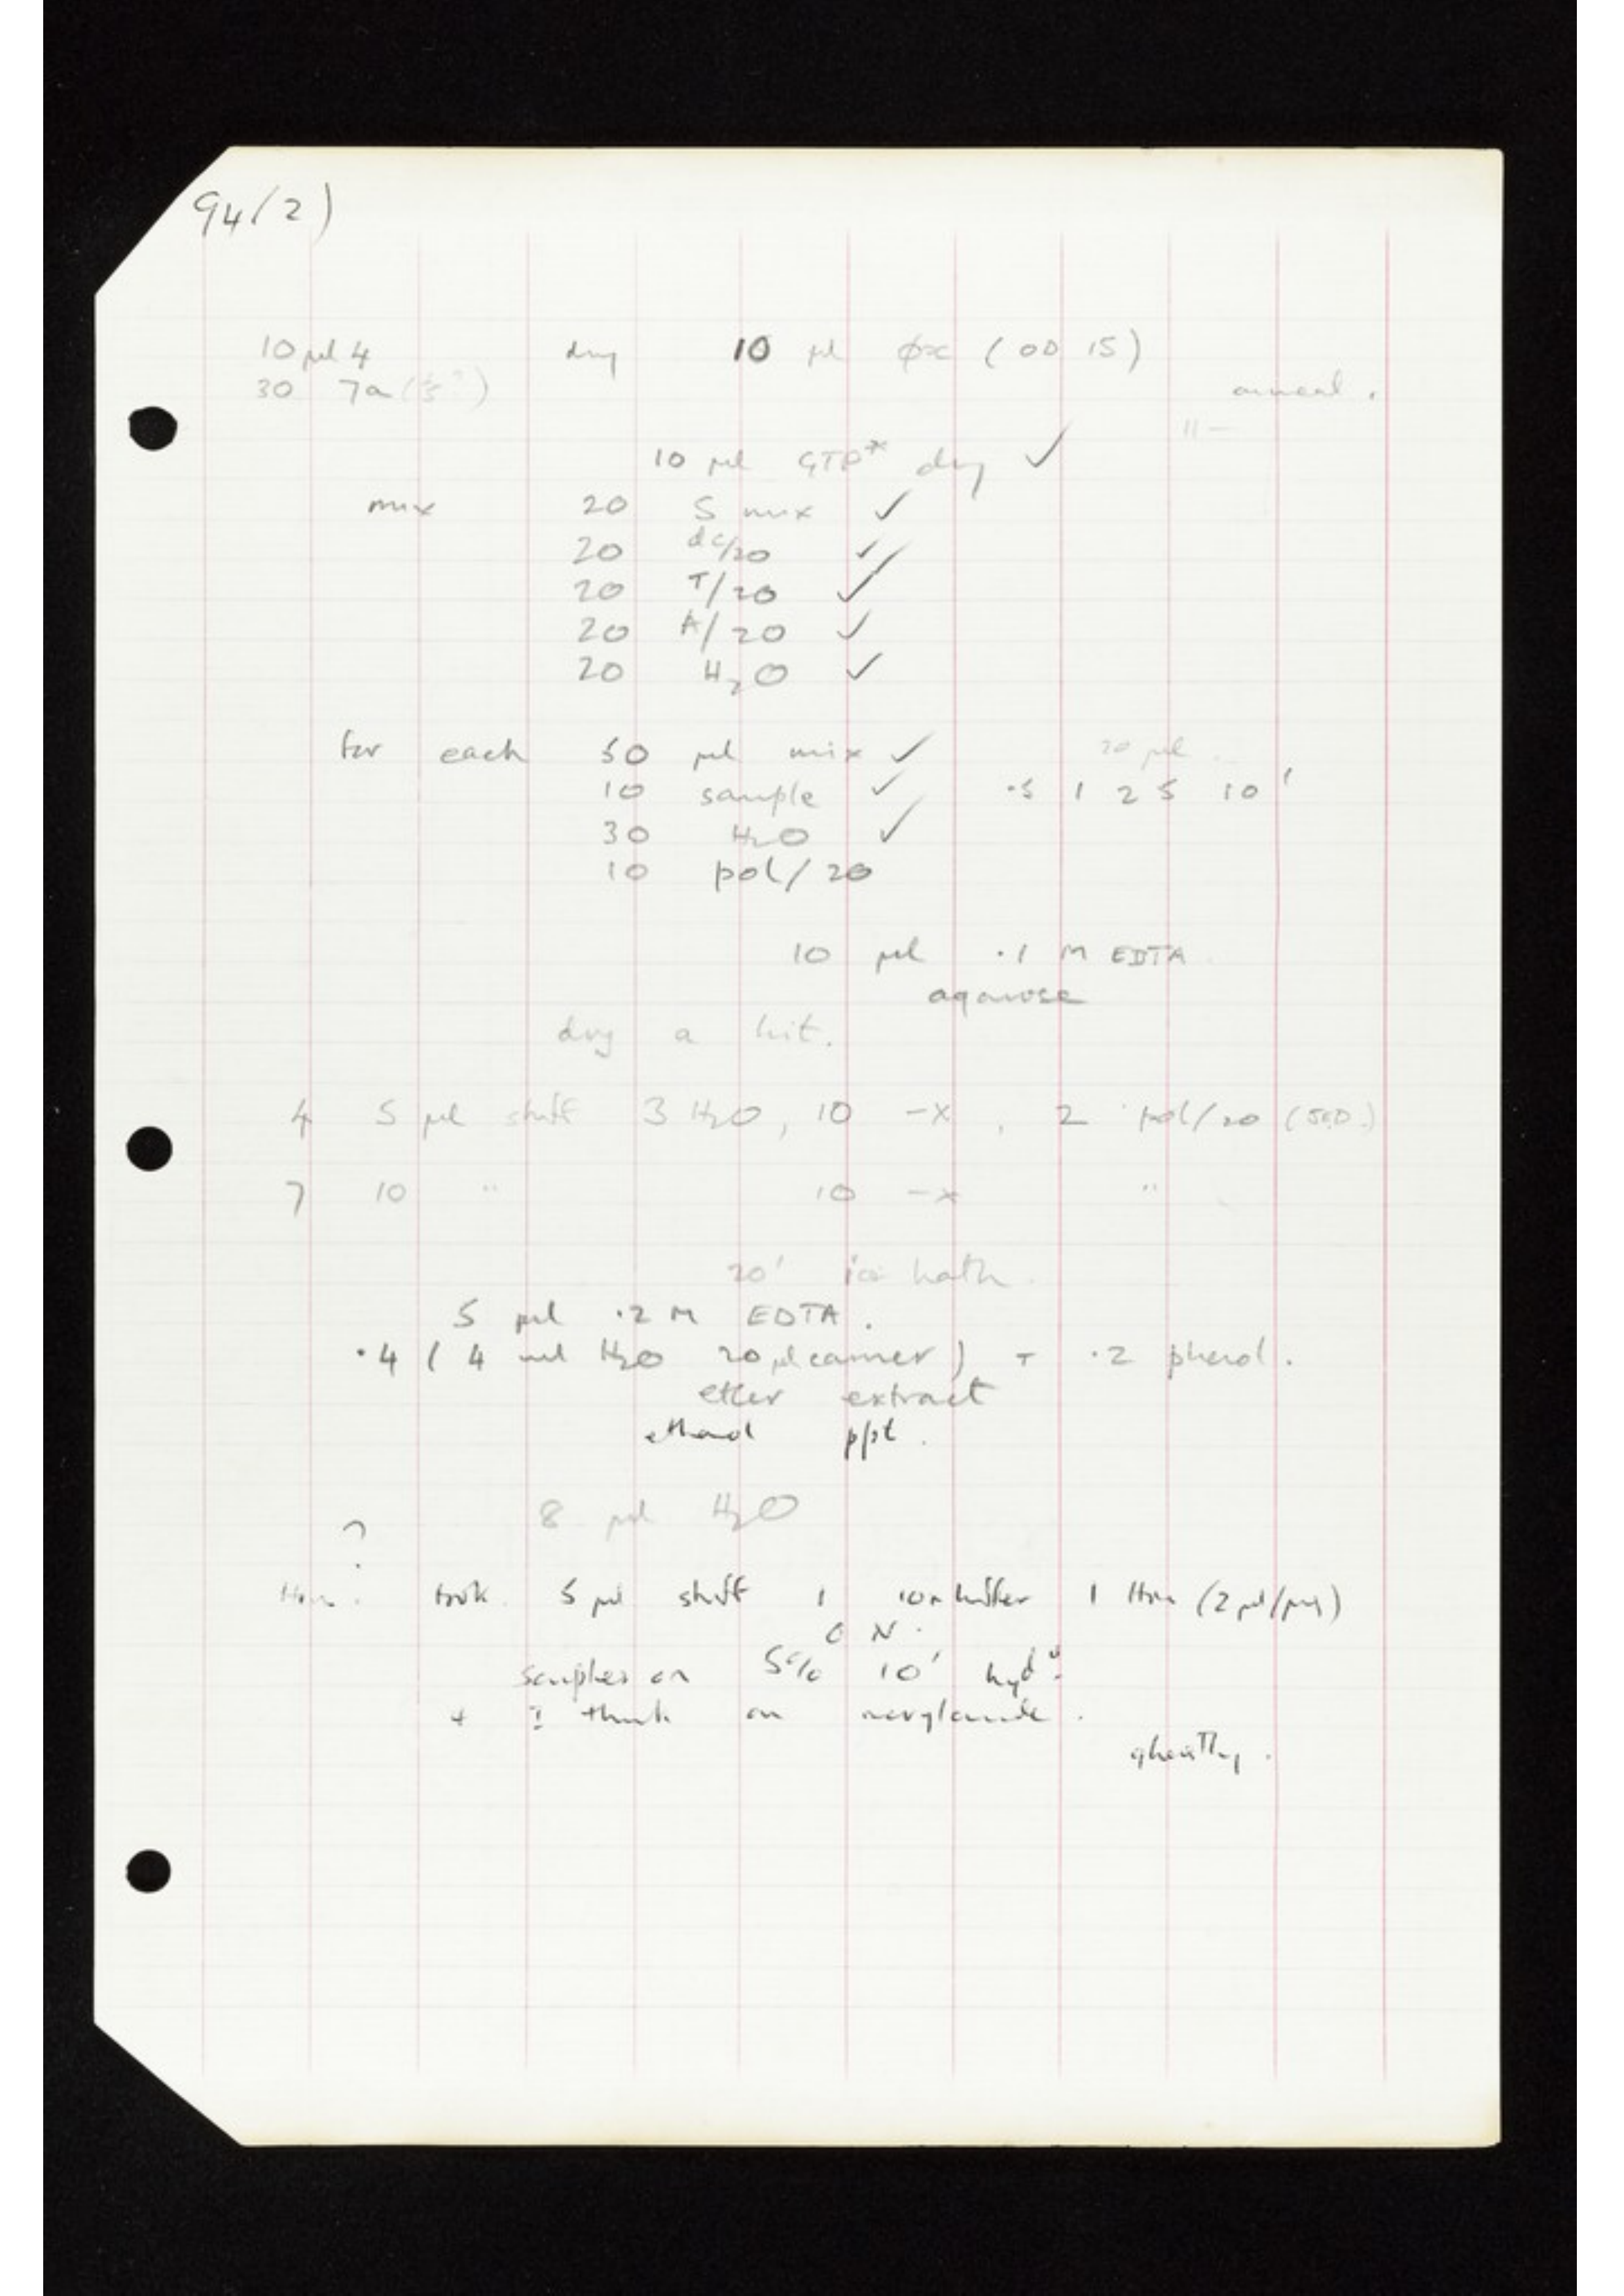 94/2)
10 µl 4 dry 10 µl φx (OD 15)
30 7a anneal.
10 µl GTP* dry ✓
mix 20 S mix ✓
20 dC/20 ✓
20 T/20 ✓
20 A/20 ✓
20 H₂O ✓
for each 50 µl mix ✓ 20 µl
10 sample ✓ .5 1 2 5 10'
30 H₂O ✓
10 pol/20
10 µl .1 M EDTA
agarose
dry a bit.
4 5 µl stuff 3 H₂O, 10 -x, 2 pol/20
7 10 " 10 -x "
20' ice bath.
5 µl .2 M EDTA.
.4 (4 ml H₂O 20 µl carrier) + .2 phenol.
ether extract
ethanol ppt.
8 µl H₂O
?
took 5 µl stuff 1 10x buffer 1
O N.
samples on 5% 10'
+ I think on acrylamide.
ghastly.